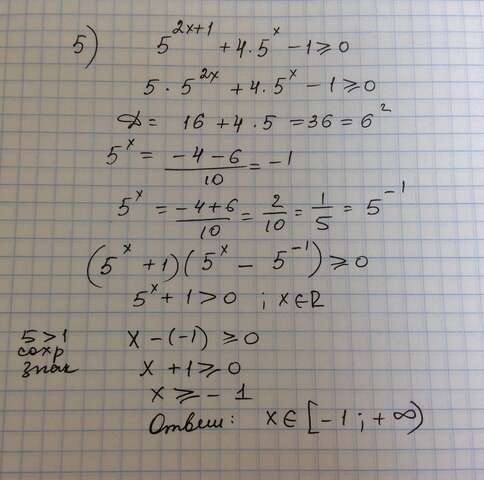 5) 5^{2x+1} + 4·5^x − 1 ≥ 0
5 · 5^{2x} + 4·5^x − 1 ≥ 0
D = 16 + 4·5 = 36 = 6^2
5^x = \frac{−4−6}{10} = −1
5^x = \frac{−4+6}{10} = \frac{2}{10} = \frac{1}{5} = 5^{−1}
(5^x + 1)(5^x − 5^{−1}) ≥ 0
5^x + 1 > 0 ; x ∈ R
5 > 1 x − (−1) ≥ 0
сохр
знак x + 1 ≥ 0
x ≥ − 1
Ответ: x ∈ [−1 ; + ∞)